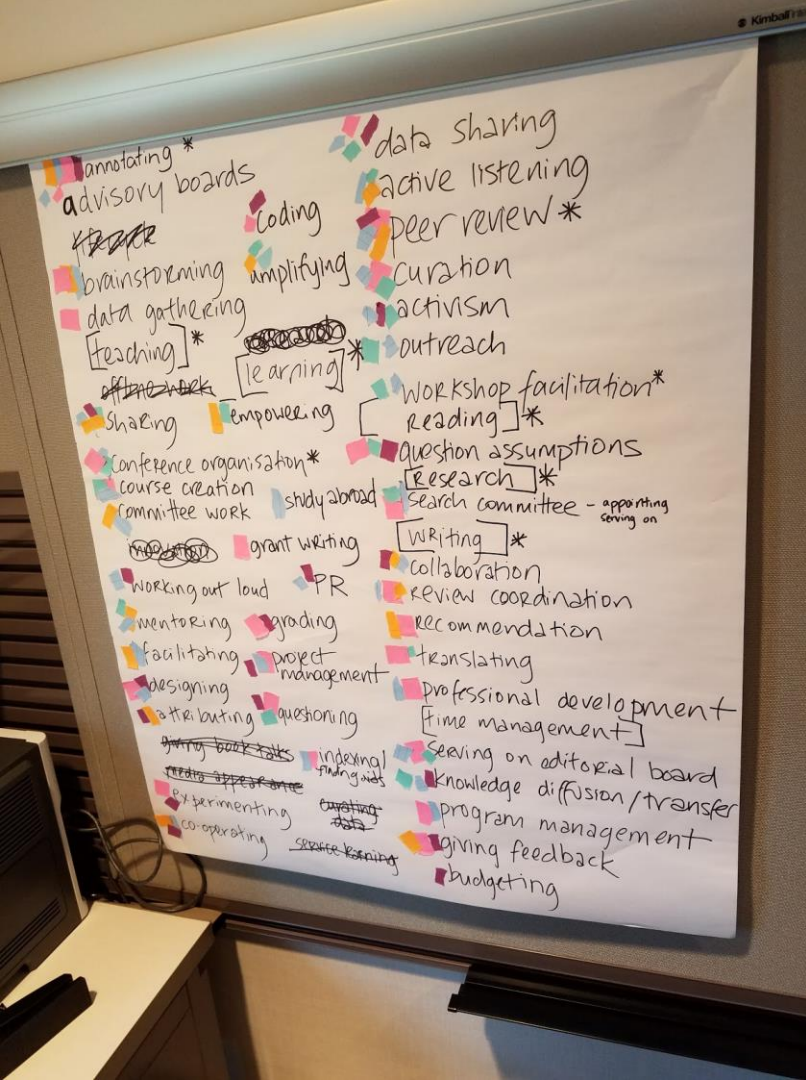 Kimball
annotating *
advisory boards
coding
brainstorming
amplifying
data gathering
[teaching] *
[learning] *
offline work
sharing
empowering
conference organisation *
course creation
committee work
study abroad
grant writing
working out loud
PR
mentoring
grading
facilitating
project
management
designing
attributing
questioning
giving book talks
indexing/
finding aids
media appearance
experimenting
curating
data
co-operating
service learning
data sharing
active listening
peer review *
curation
activism
outreach
workshop facilitation *
[Reading] *
question assumptions
[Research] *
search committee - appointing
serving on
[WRiting] *
collaboration
review coordination
recommendation
translating
professional development
[time management]
serving on editorial board
knowledge diffusion/transfer
program management
giving feedback
budgeting